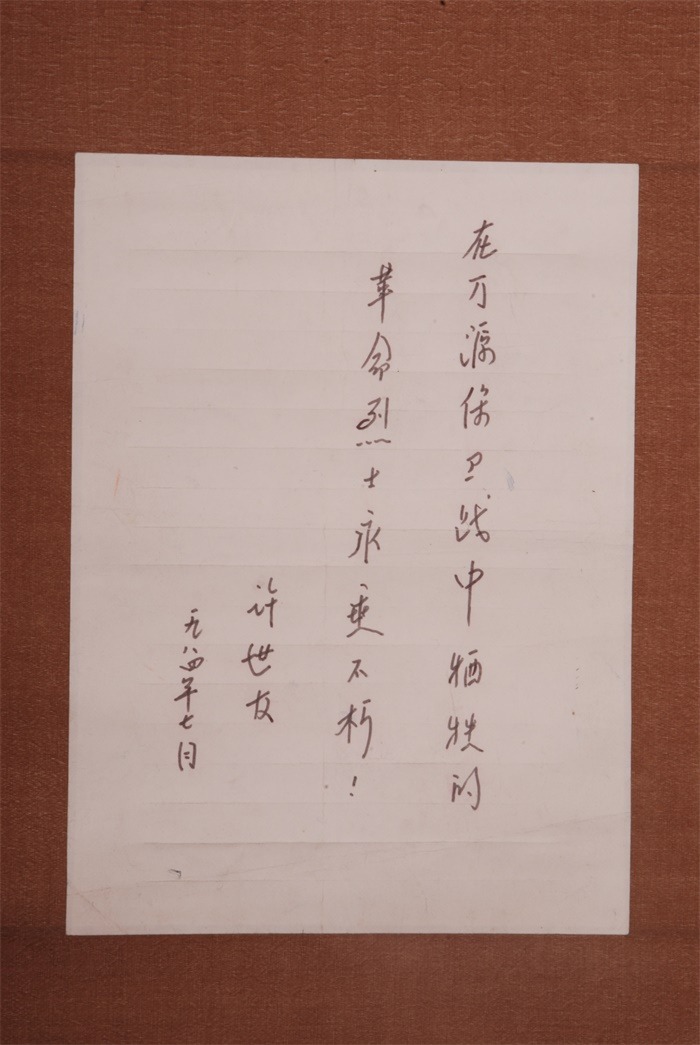 在万源保卫战中牺牲的
革命烈士永垂不朽！
许世友
一九八四年七月